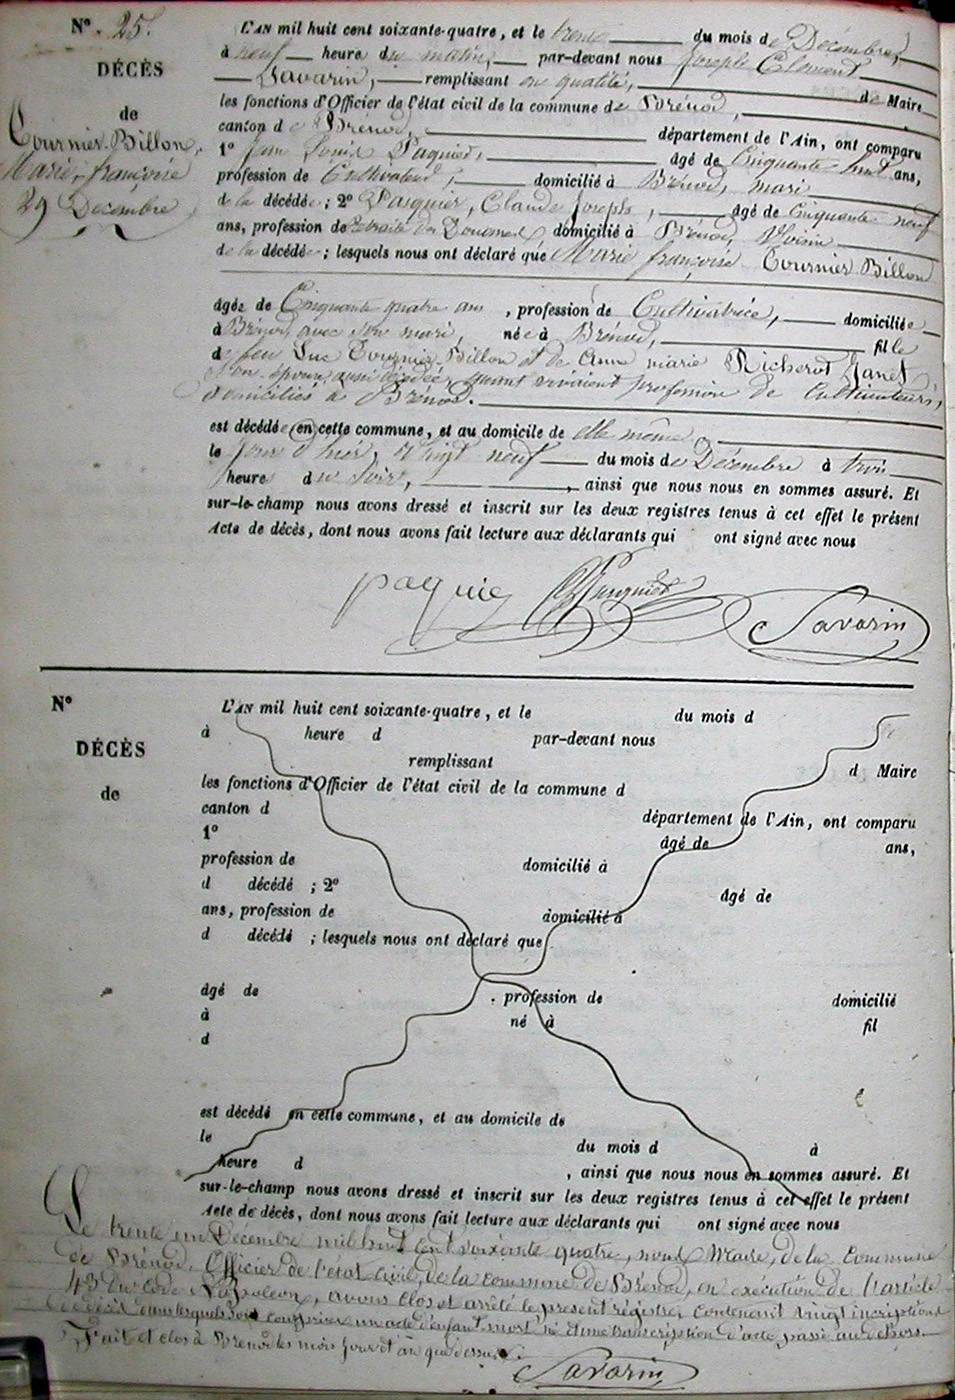 N° 25.
DÉCÈS
de
Tournier-Billon,
Marie, françoise
29 Décembre
L'AN mil huit cent soixante-quatre, et le trente du mois de Décembre,
à neuf heure du matin, par-devant nous Joseph Clément
Savarin, remplissant en qualité, de Maire
les fonctions d'Officier de l'état civil de la commune de Brénod,
canton de Brénod, département de l'Ain, ont comparu
1° Jean Louis Paquier, âgé de Cinquante huit ans,
profession de Cultivateur, domicilié à Brénod, mari
de la décédée; 2° Pasquier, Claude Joseph, âgé de Cinquante neuf
ans, profession de retraité des Douanes domicilié à Brénod, Voisin
de la décédée; lesquels nous ont déclaré que Marie françoise Tournier-Billon
âgée de Cinquante quatre ans, profession de Cultivatrice, domiciliée
à Brénod, avec son mari, née à Brénod, fille
de feu Luc Tournier-Billon et de Anne marie Richerot Janet,
son épouse, aussi décédée, quant vivaient profession de Cultivateurs,
domiciliés à Brénod.
est décédée en cette commune, et au domicile de elle même,
le jour d'hier, vingt neuf du mois de Décembre à trois
heure du soir, ainsi que nous nous en sommes assuré. Et
sur-le-champ nous avons dressé et inscrit sur les deux registres tenus à cet effet le présent
Acte de décès, dont nous avons fait lecture aux déclarants qui ont signé avec nous
paquier Pasquier Savarin
N°
DÉCÈS
de
L'AN mil huit cent soixante-quatre, et le du mois d
à heure d par-devant nous
remplissant d Maire
les fonctions d'Officier de l'état civil de la commune d
canton d département de l'Ain, ont comparu
1° âgé de ans,
profession de domicilié à
d décédé ; 2° âgé de
ans, profession de domicilié à
d décédé ; lesquels nous ont déclaré que
âgé de , profession de domicilié
à né à fil
d
est décédé en cette commune, et au domicile de
le du mois d à
heure d , ainsi que nous nous en sommes assuré. Et
sur-le-champ nous avons dressé et inscrit sur les deux registres tenus à cet effet le présent
Acte de décès, dont nous avons fait lecture aux déclarants qui ont signé avec nous
Le trente un Décembre mil huit cent soixante quatre, nous Maire, de la Commune
de Brénod, Officier de l'état Civil, de la commune de Brénod, en exécution de l'article
43 du Code Napoléon, avons clos et arrêté le present régistre, contenant vingt incriptions
de décès dans lesquels sont comprises un acte d'enfant mort né et une transcription d'acte passé au dehors.
Fait et clos à Brenod les mois jour et an que dessus.
Savarin